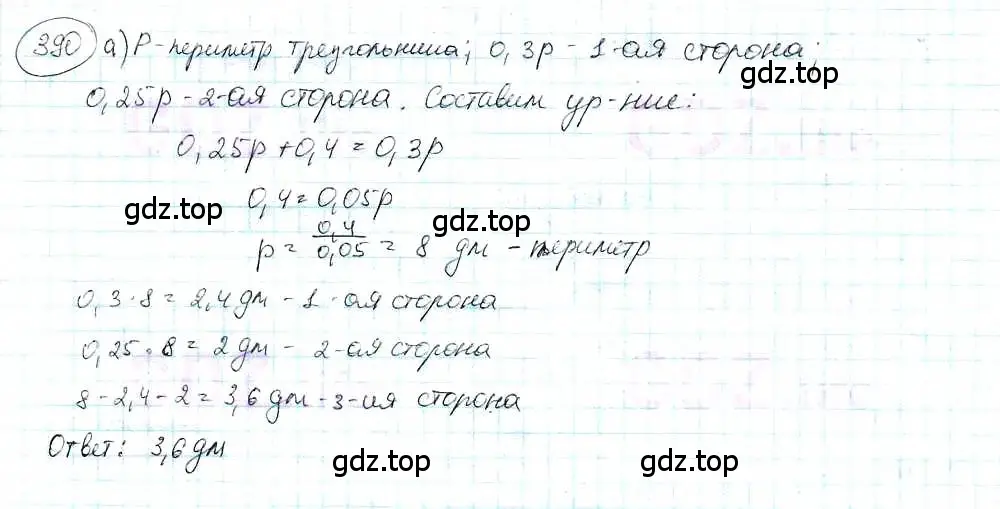 390 а) P-периметр треугольника; 0,3p - 1-ая сторона;
gdz.top gdz.top
0,25p - 2-ая сторона. Составим ур-ние:
0,25p + 0,4 = 0,3p
0,4 = 0,05p
gdz.top gdz.top
p = 0,4/0,05 = 8 дм - периметр
0,3·8 = 2,4 дм - 1-ая сторона
0,25·8 = 2 дм - 2-ая сторона
8 - 2,4 - 2 = 3,6 дм - 3-ия сторона
Ответ: 3,6 дм
gdz.top gdz.top